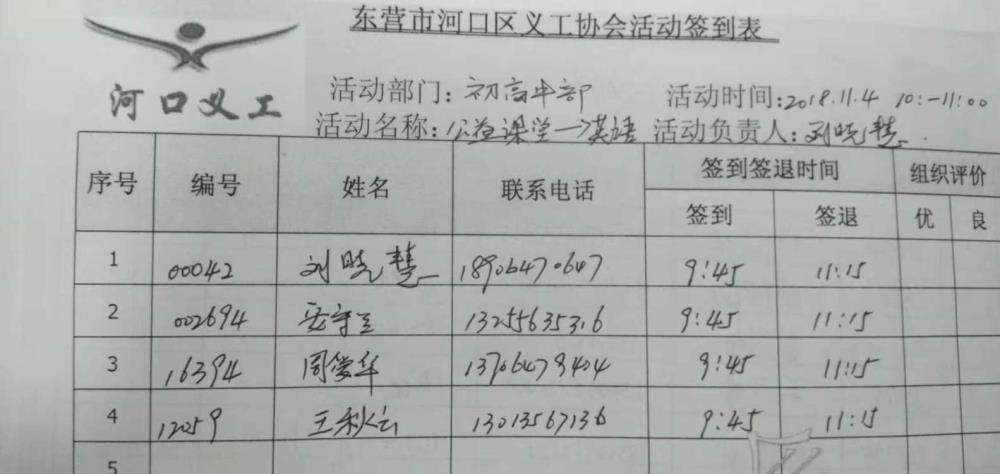 东营市河口区义工协会活动签到表
河口义工
活动部门:初高中部 活动时间:2018.11.4 10:-11:00
活动名称:公益课堂一>英语 活动负责人:刘晓慧
序号 编号 姓名 联系电话 签到签退时间 组织评价
签到 签退 优 良
1 00042 刘晓慧 18906470647 9:45 11:15
2 002694 安守立 13255635316 9:45 11:15
3 16394 周荣华 13706479404 9:45 11:15
4 12059 王秋云 13013567136 9:45 11:15
5